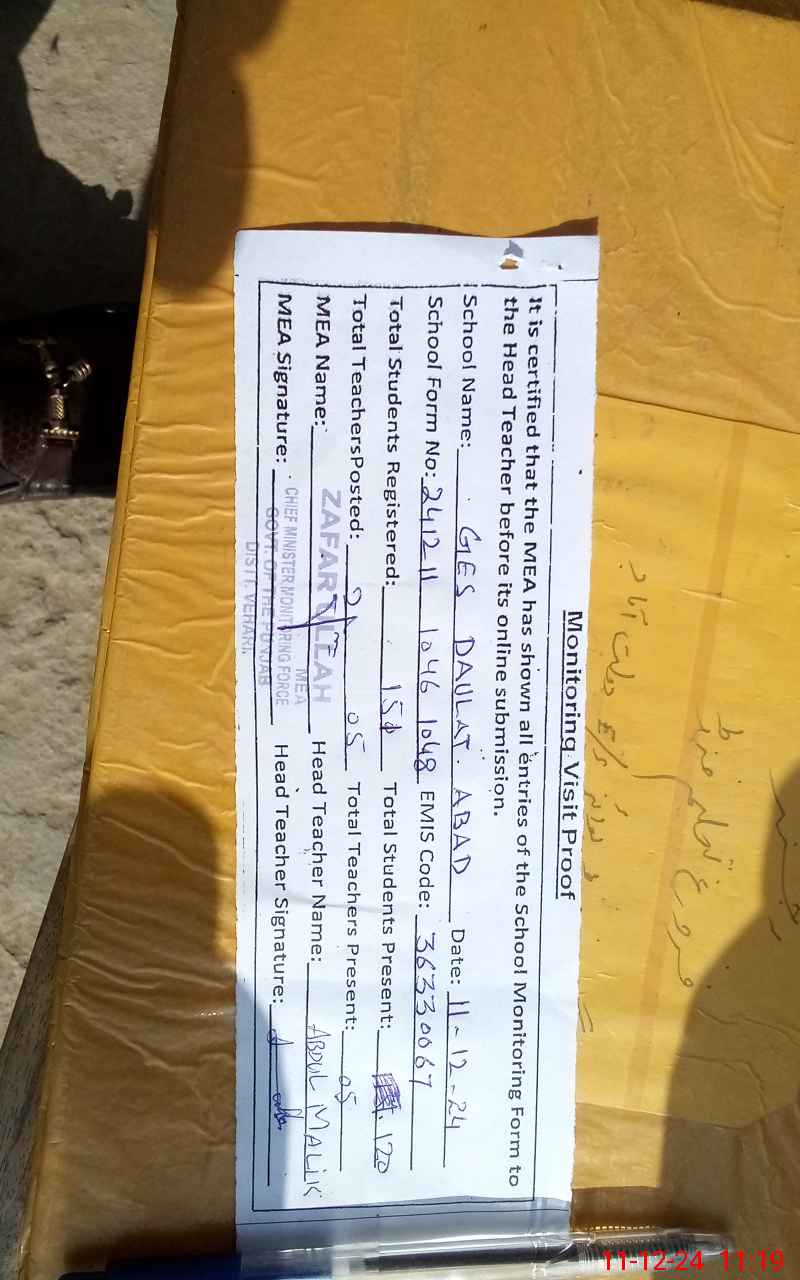 Monitoring Visit Proof
It is certified that the MEA has shown all entries of the School Monitoring Form to
the Head Teacher before its online submission.
School Name: GES DAULAT. ABAD Date: 11-12-24
School Form No: 241211 1046 1048 EMIS Code: 36330067
Total Students Registered: 150 Total Students Present: 120
Total TeachersPosted: 05 Total Teachers Present: 05
MEA Name: ZAFAR ULLAH Head Teacher Name: ABDUL MALIK
MEA
MEA Signature: Head Teacher Signature:
CHIEF MINISTER MONITORING FORCE
GOVT. OF THE PUNJAB
DISTT. VEHARI.
فروغ تعلیم فنڈ
دولت آباد
11-12-24 11:19